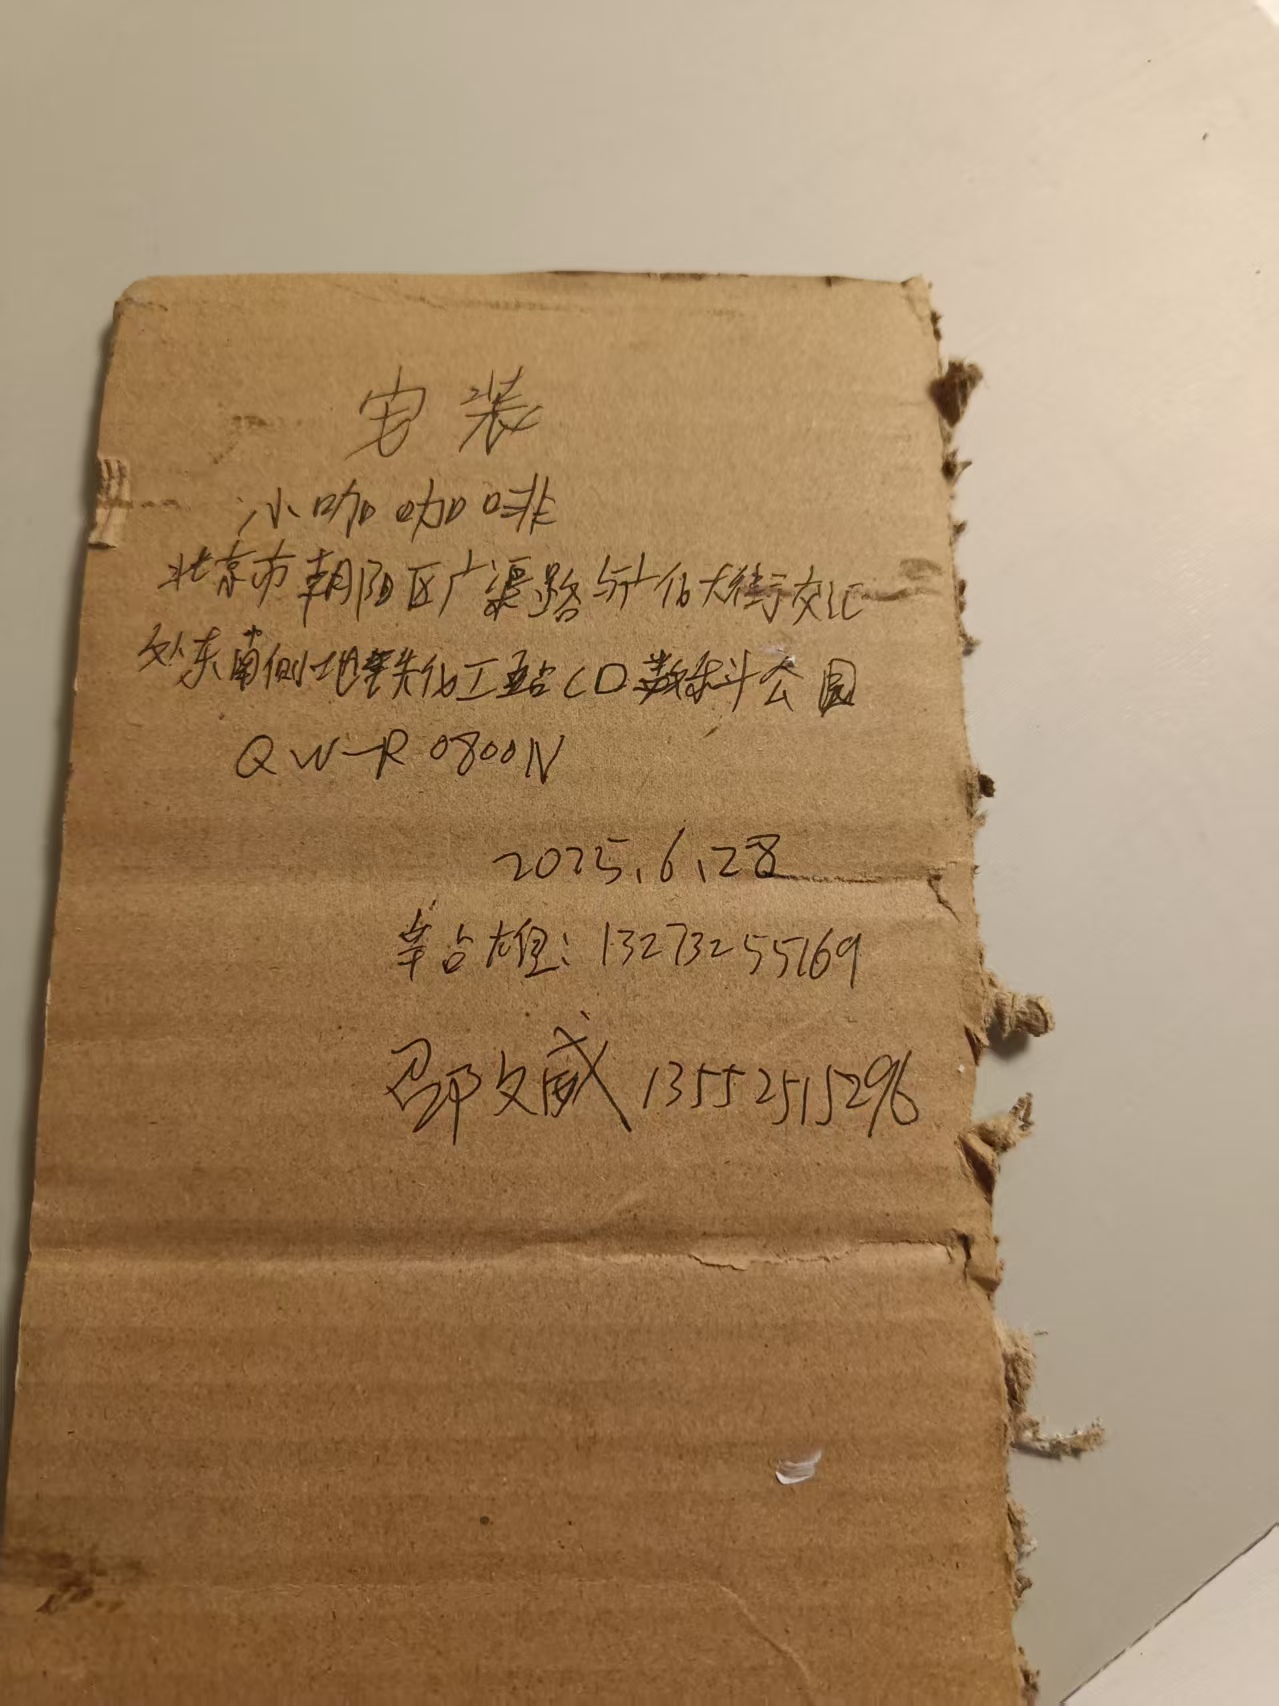 安装
小咖咖啡
北京市朝阳区广渠路与化大街交汇
处东南侧地铁化工站CD数科公园
QW-R0800N
2025.6.28
辛占雄:13273255769
邵文威 13552515296